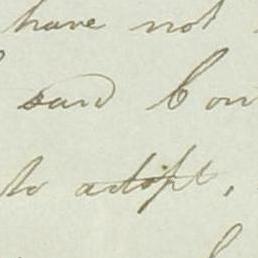 have not
said Con
to adopt,